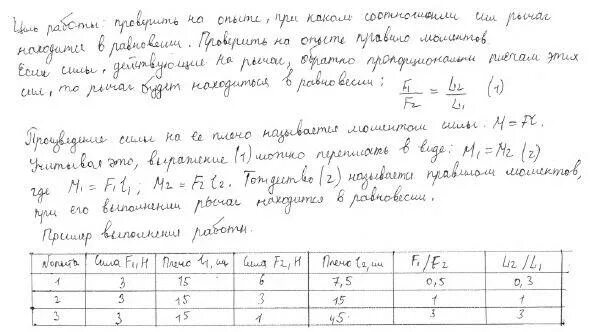 Цель работы: проверить на опыте, при каком соотношении сил рычаг
находится в равновесии. Проверить на опыте правило моментов
Если силы, действующие на рычаг, обратно пропорциональны плечам этих
сил, то рычаг будет находиться в равновесии: F1/F2 = L2/L1 (1)
Произведение силы на ее плечо называется моментом силы. M=Fl.
Учитывая это, выражение (1) можно переписать в виде: M1 = M2 (2)
где M1 = F1 l1; M2 = F2 l2. Тождество (2) называется правилом моментов,
при его выполнении рычаг находится в равновесии.
Пример выполнения работы.
№опыта Сила F1, Н Плечо l1, см Сила F2, Н Плечо l2, см F1/F2 L2/L1
1 3 15 6 7,5 0,5 0,3
2 3 15 3 15 1 1
3 3 15 1 45 3 3